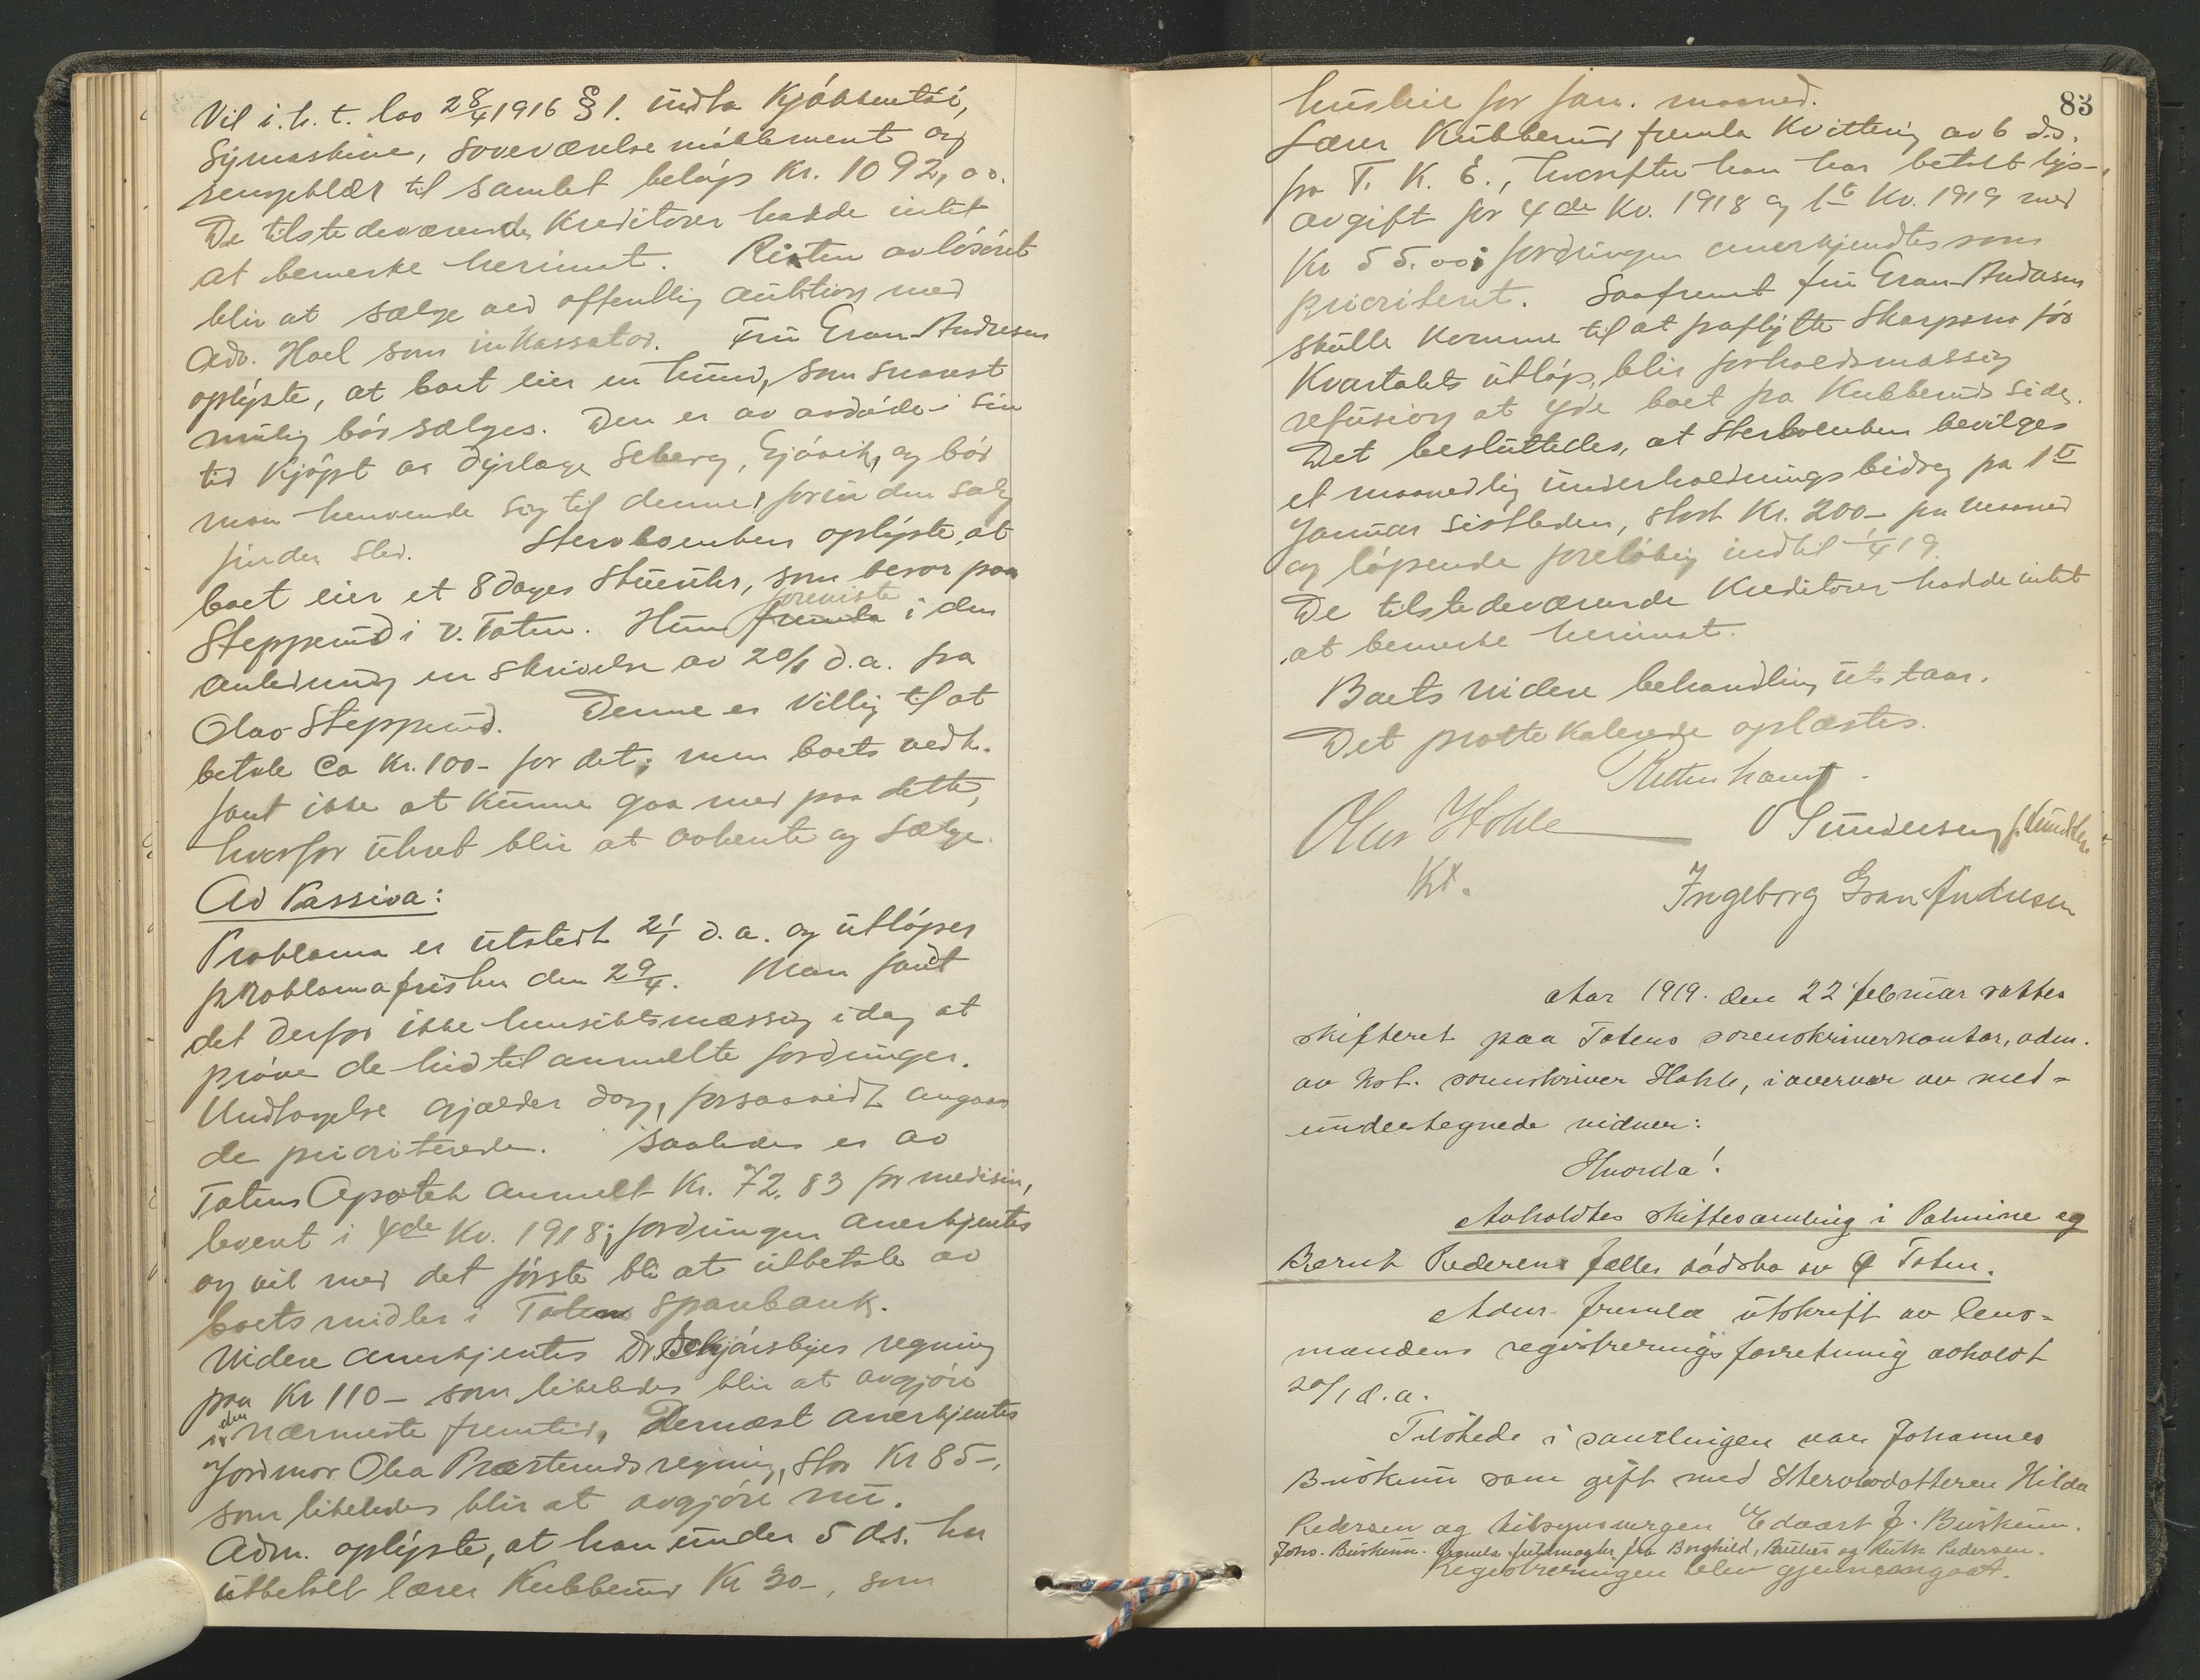 Vil i. h. t. lov 28/4 1916 § 1. undta Kjökkentöi,
Symaskine, soveværelsemöblement og
sengeklær til samlet beløp Kr. 1092,00.
De tilstedeværende Kreditorer hadde intet
at bemerke herimot. Resten av lösöret
blir at sælge ved offentlig auktion med
Adv. Hoel som inkassator. Fru Gran-Andresen
oplyste, at boet eier en hund, som snarest
mulig bör sælges. Den er av avdöde i sin
tid Kjöpt av dyrlæge Seberg, Gjövik, og bör
man henvende sig til denne, forin den salg
finder sted. Stervboenken oplyste, at
boet eier et 8 dages Stueuhr, som beror paa
Steppend i V. Toten. Hun foreviste fremla i den
anledning en skrivelse av 20/1 d.a. fra
Olav Steppend. Denne er villig til at
betale ca Kr. 100- for det; men boets vedk.
fant ikke at kunne gaa med paa dette,
hvorfor uhret blir at avhente og sælge.
Ad Passiva:
Proklama er utstedt 21/1 d.a. og utlöper
proklamafristen den 29/4. Man fandt
det derfor ikke hensiktsmæssig idag at
pröve de hidtil anmeldte fordringer.
Undtagelse gjælder dog, forsaavidt angaar
de prioriterede. Saaledes er av
Totens Apotek anmeldt Kr. 72,83 for medisin,
levert i 4de Kv. 1918; fordringen anerkjentes
og vil med det første bli at utbetale av
boets midler i Totens Sparebank.
Videre anerkjentes Dr. Schjörsbyes regning
paa Kr 110- som likeledes blir at avgjöre
i den nærmeste fremtid, Dernæst anerkjentes
Jordmor Olea Præsteruds regning, stor Kr 85-,
som likeledes blir at avgjöre nu.
Adm. oplyste, at han under 5 d.s. har
utbetalt lærer Kubberud Kr 30-, som
83
husleie for jan. maaned.
Lærer Kubberud fremla Kvittering av 6 d.s.
fra T. K. E., hvorefter han har betalt lys-
avgift for 4de Kv. 1918 og 1ste Kv. 1919 med
Kr 55.00; fordringen anerkjendtes som
prioritert. Saafremt fru Gran-Andresen
skulle komme til at fraflytte Skarpsno för
Kvartalets utlöp, blir forholdsmæssig
refusion at yde boet fra Kubberuds side.
Det besluttedes, at Stervboenken bevilges
et maanedlig underholdningsbidrag fra 1ste
Januar sistleden, stort Kr. 200- pr maaned
og löpende foreløbig indtil 1/4 19.
De tilstedeværende Kreditorer hadde intet
at bemerke herimot.
Boets videre behandling utstaar.
Det protokolerede oplæstes.
Retten hævet.
Olav Hohle
Kst.
O Gundersen f. Lundby
Ingeborg Gran Andresen
Aar 1919. den 22 februar sattes
skifteret paa Totens sorenskriverkontor, adm.
av kst. sorenskriver Hohle, i overvær av med-
undertegnede vidner:
Hvorda!
Avholdtes skiftesamling i Palmine og
Bernt Pedersens fælles dödsbo av Ø Toten.
Adm. fremla utskrift av lens-
mandens registreringsforretning avholdt
20/1 d.a.
Tilstede i samlingen var Johannes
Buskum som gift med Stervbodatteren Hilda
Pedersen og tilsynsvergen Edvart J. Buskum.
Johs. Buskum fremla fuldmagter fra Borghild, og Ruth Pedersen.
Registreringen blev gjennemgaat.